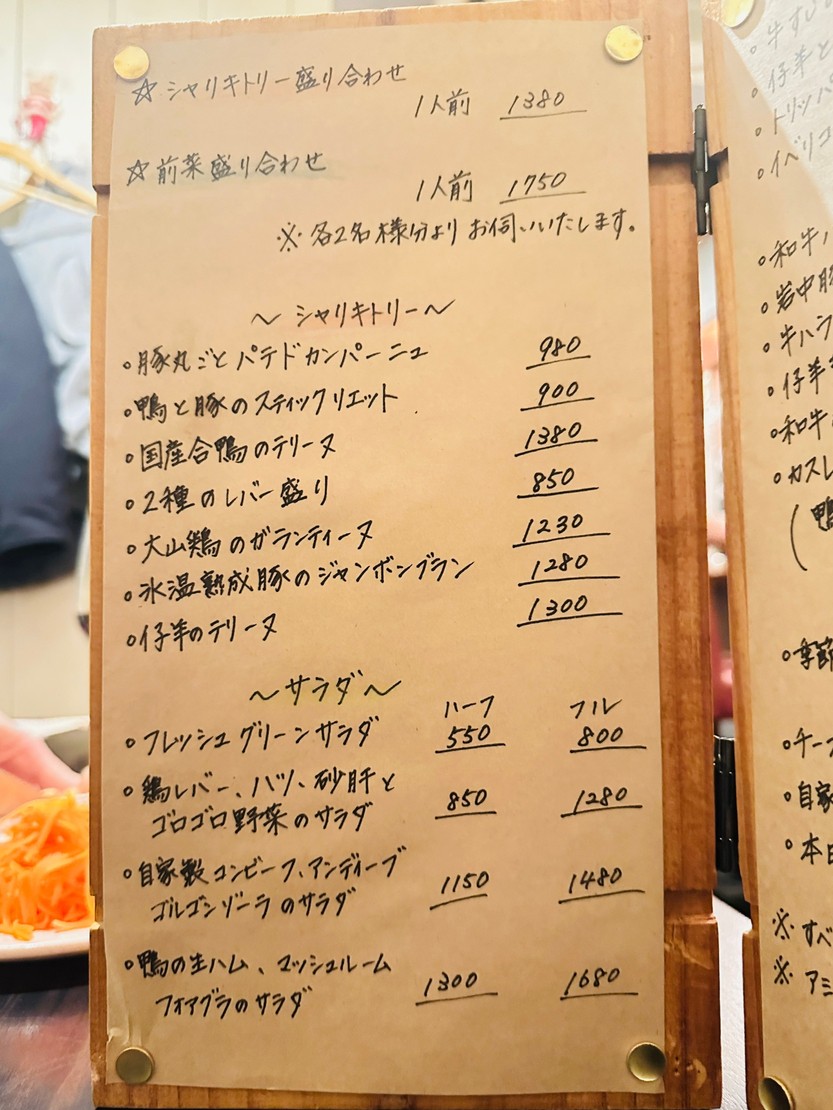 ☆シャリキトリー盛り合わせ
1人前 1380
☆前菜盛り合わせ
1人前 1750
※各2名様分よりお伺いいたします。
～シャリキトリー～
・豚丸ごとパテドカンパーニュ 980
・鴨と豚のスティックリエット 900
・国産合鴨のテリーヌ 1380
・2種のレバー盛り 850
・大山鶏のガランティーヌ 1230
・氷温熟成豚のジャンボンブラン 1280
・仔羊のテリーヌ 1300
～サラダ～ ハーフ フル
・フレッシュグリーンサラダ 550 800
・鶏レバー、ハツ、砂肝と
ゴロゴロ野菜のサラダ 850 1280
・自家製コンビーフ、アンディーブ
ゴルゴンゾーラのサラダ 1150 1480
・鴨の生ハム、マッシュルーム
フォアグラのサラダ 1300 1680
・牛す
・仔羊と
・トリッパ
・イベリコ
・和牛
・岩中豚
・牛ハラ
・仔羊
・和牛
・カスレ
(鴨
・季節
・チー
・自家
・本日
※すべ
※アミ